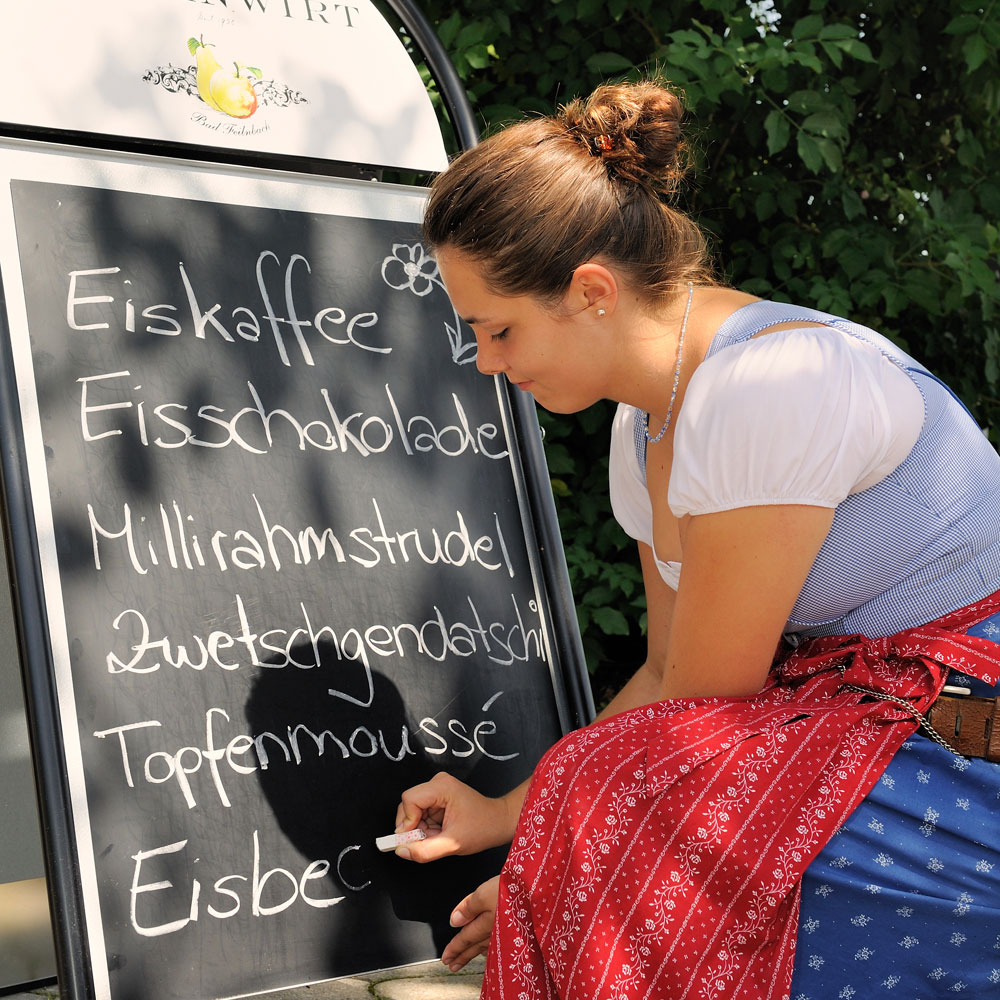 NWIRT
Bad Feilnbach
Eiskaffee
Eisschokolade
Millirahmstrudel
Zwetschgendatschi
Topfenmoussé
Eisbec